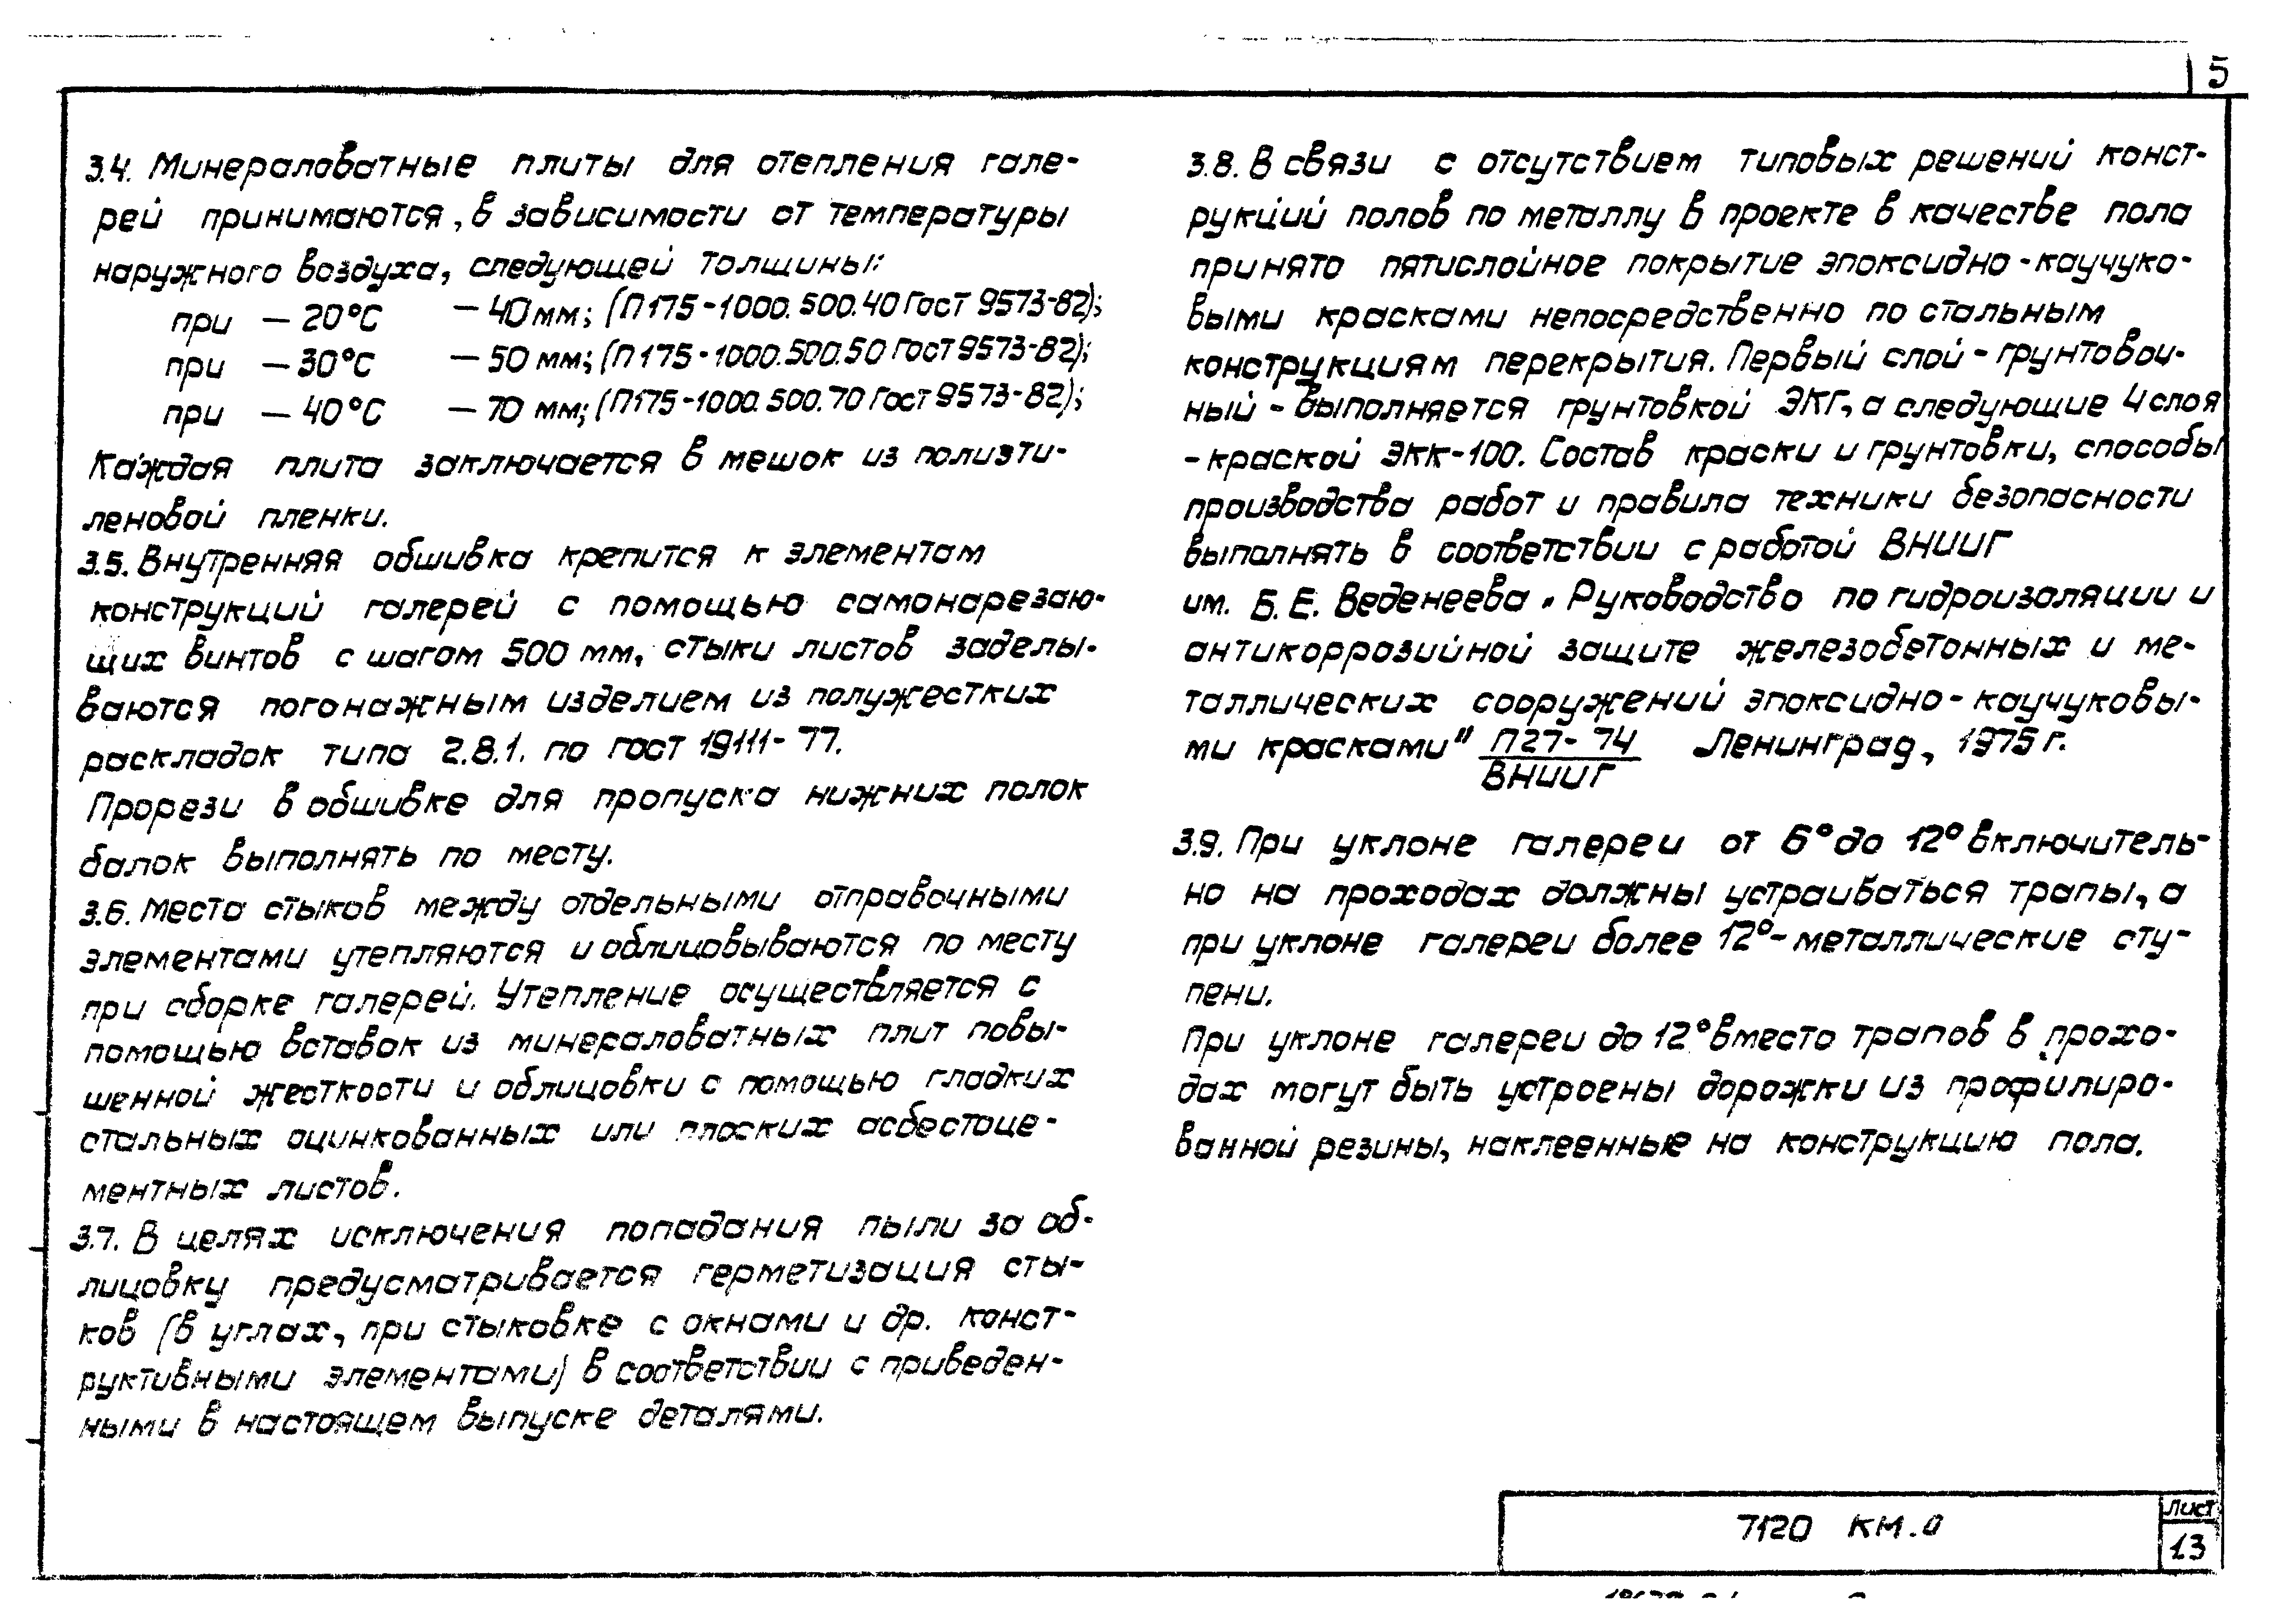 5
3.4. Минераловатные плиты для отепления гале-
рей принимаются, в зависимости от температуры
наружного воздуха, следующей толщины:
при — 20°С — 40 мм; (П175-1000.500.40 ГОСТ 9573-82);
при — 30°С — 50 мм; (П175-1000.500.50 ГОСТ 9573-82);
при — 40°С — 70 мм; (П175-1000.500.70 ГОСТ 9573-82);
Каждая плита заключается в мешок из полиэти-
леновой пленки.
3.5. Внутренняя обшивка крепится к элементам
конструкций галерей с помощью самонарезаю-
щих винтов с шагом 500 мм, стыки листов заделы-
ваются погонажным изделием из полужестких
раскладок типа 2.8.1. по ГОСТ 19111-77.
Прорези в обшивке для пропуска нижних полок
балок выполнять по месту.
3.6. Места стыков между отдельными отправочными
элементами утепляются и облицовываются по месту
при сборке галерей. Утепление осуществляется с
помощью вставок из минераловатных плит повы-
шенной жесткости и облицовки с помощью гладких
стальных оцинкованных или плоских асбестоце-
ментных листов.
3.7. В целях исключения попадания пыли за об-
лицовку предусматривается герметизация сты-
ков (в углах, при стыковке с окнами и др. конст-
руктивными элементами) в соответствии с приведен-
ными в настоящем выпуске деталями.
3.8. В связи с отсутствием типовых решений конст-
рукций полов по металлу в проекте в качестве пола
принято пятислойное покрытие эпоксидно-каучуко-
выми красками непосредственно по стальным
конструкциям перекрытия. Первый слой - грунтовоч-
ный - выполняется грунтовкой ЭКГ, а следующие 4 слоя
- краской ЭКК-100. Состав краски и грунтовки, способы
производства работ и правила техники безопасности
выполнять в соответствии с работой ВНИИГ
им. Б.Е. Веденеева „Руководство по гидроизоляции и
антикоррозийной защите железобетонных и ме-
таллических сооружений эпоксидно-каучуковы-
ми красками" П27-74 Ленинград, 1975 г.
ВНИИГ
3.9. При уклоне галереи от 6° до 12° включитель-
но на проходах должны устраиваться трапы, а
при уклоне галереи более 12° - металлические сту-
пени.
При уклоне галереи до 12° вместо трапов в прохо-
дах могут быть устроены дорожки из профилиро-
ванной резины, наклеенные на конструкцию пола.
7120 КМ.0
Лист
13